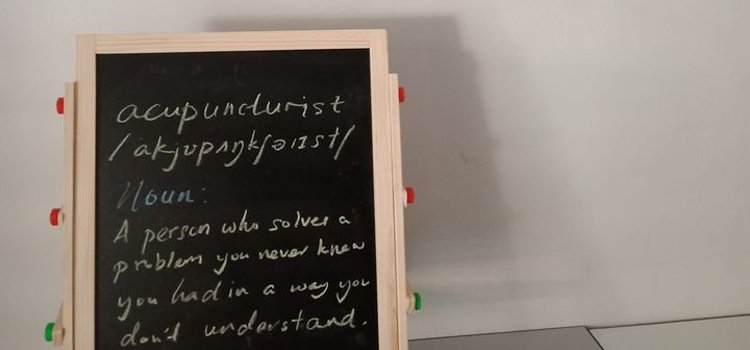 acupuncturist
/akjʊpʌŋkʃəɪst/
Noun:
A person who solves a
problem you never knew
you had in a way you
don't understand.